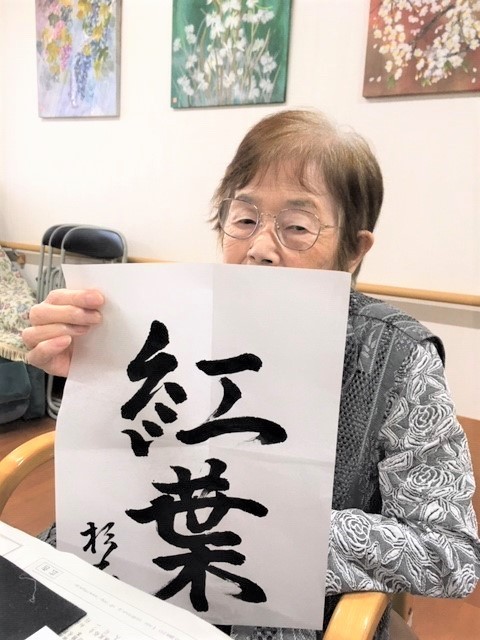 紅葉
杉